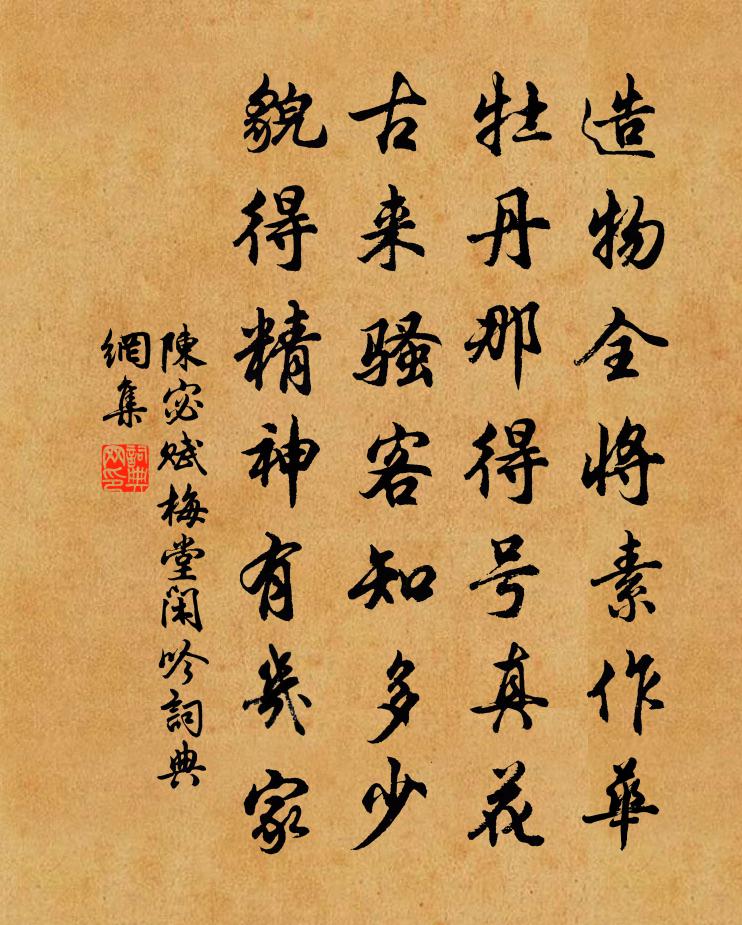 造物全将素作華
牡丹那得号真花
古来骚客知多少
貌得精神有幾家
陳宓赋梅堂閑吟詞典
網集
詞典
网印